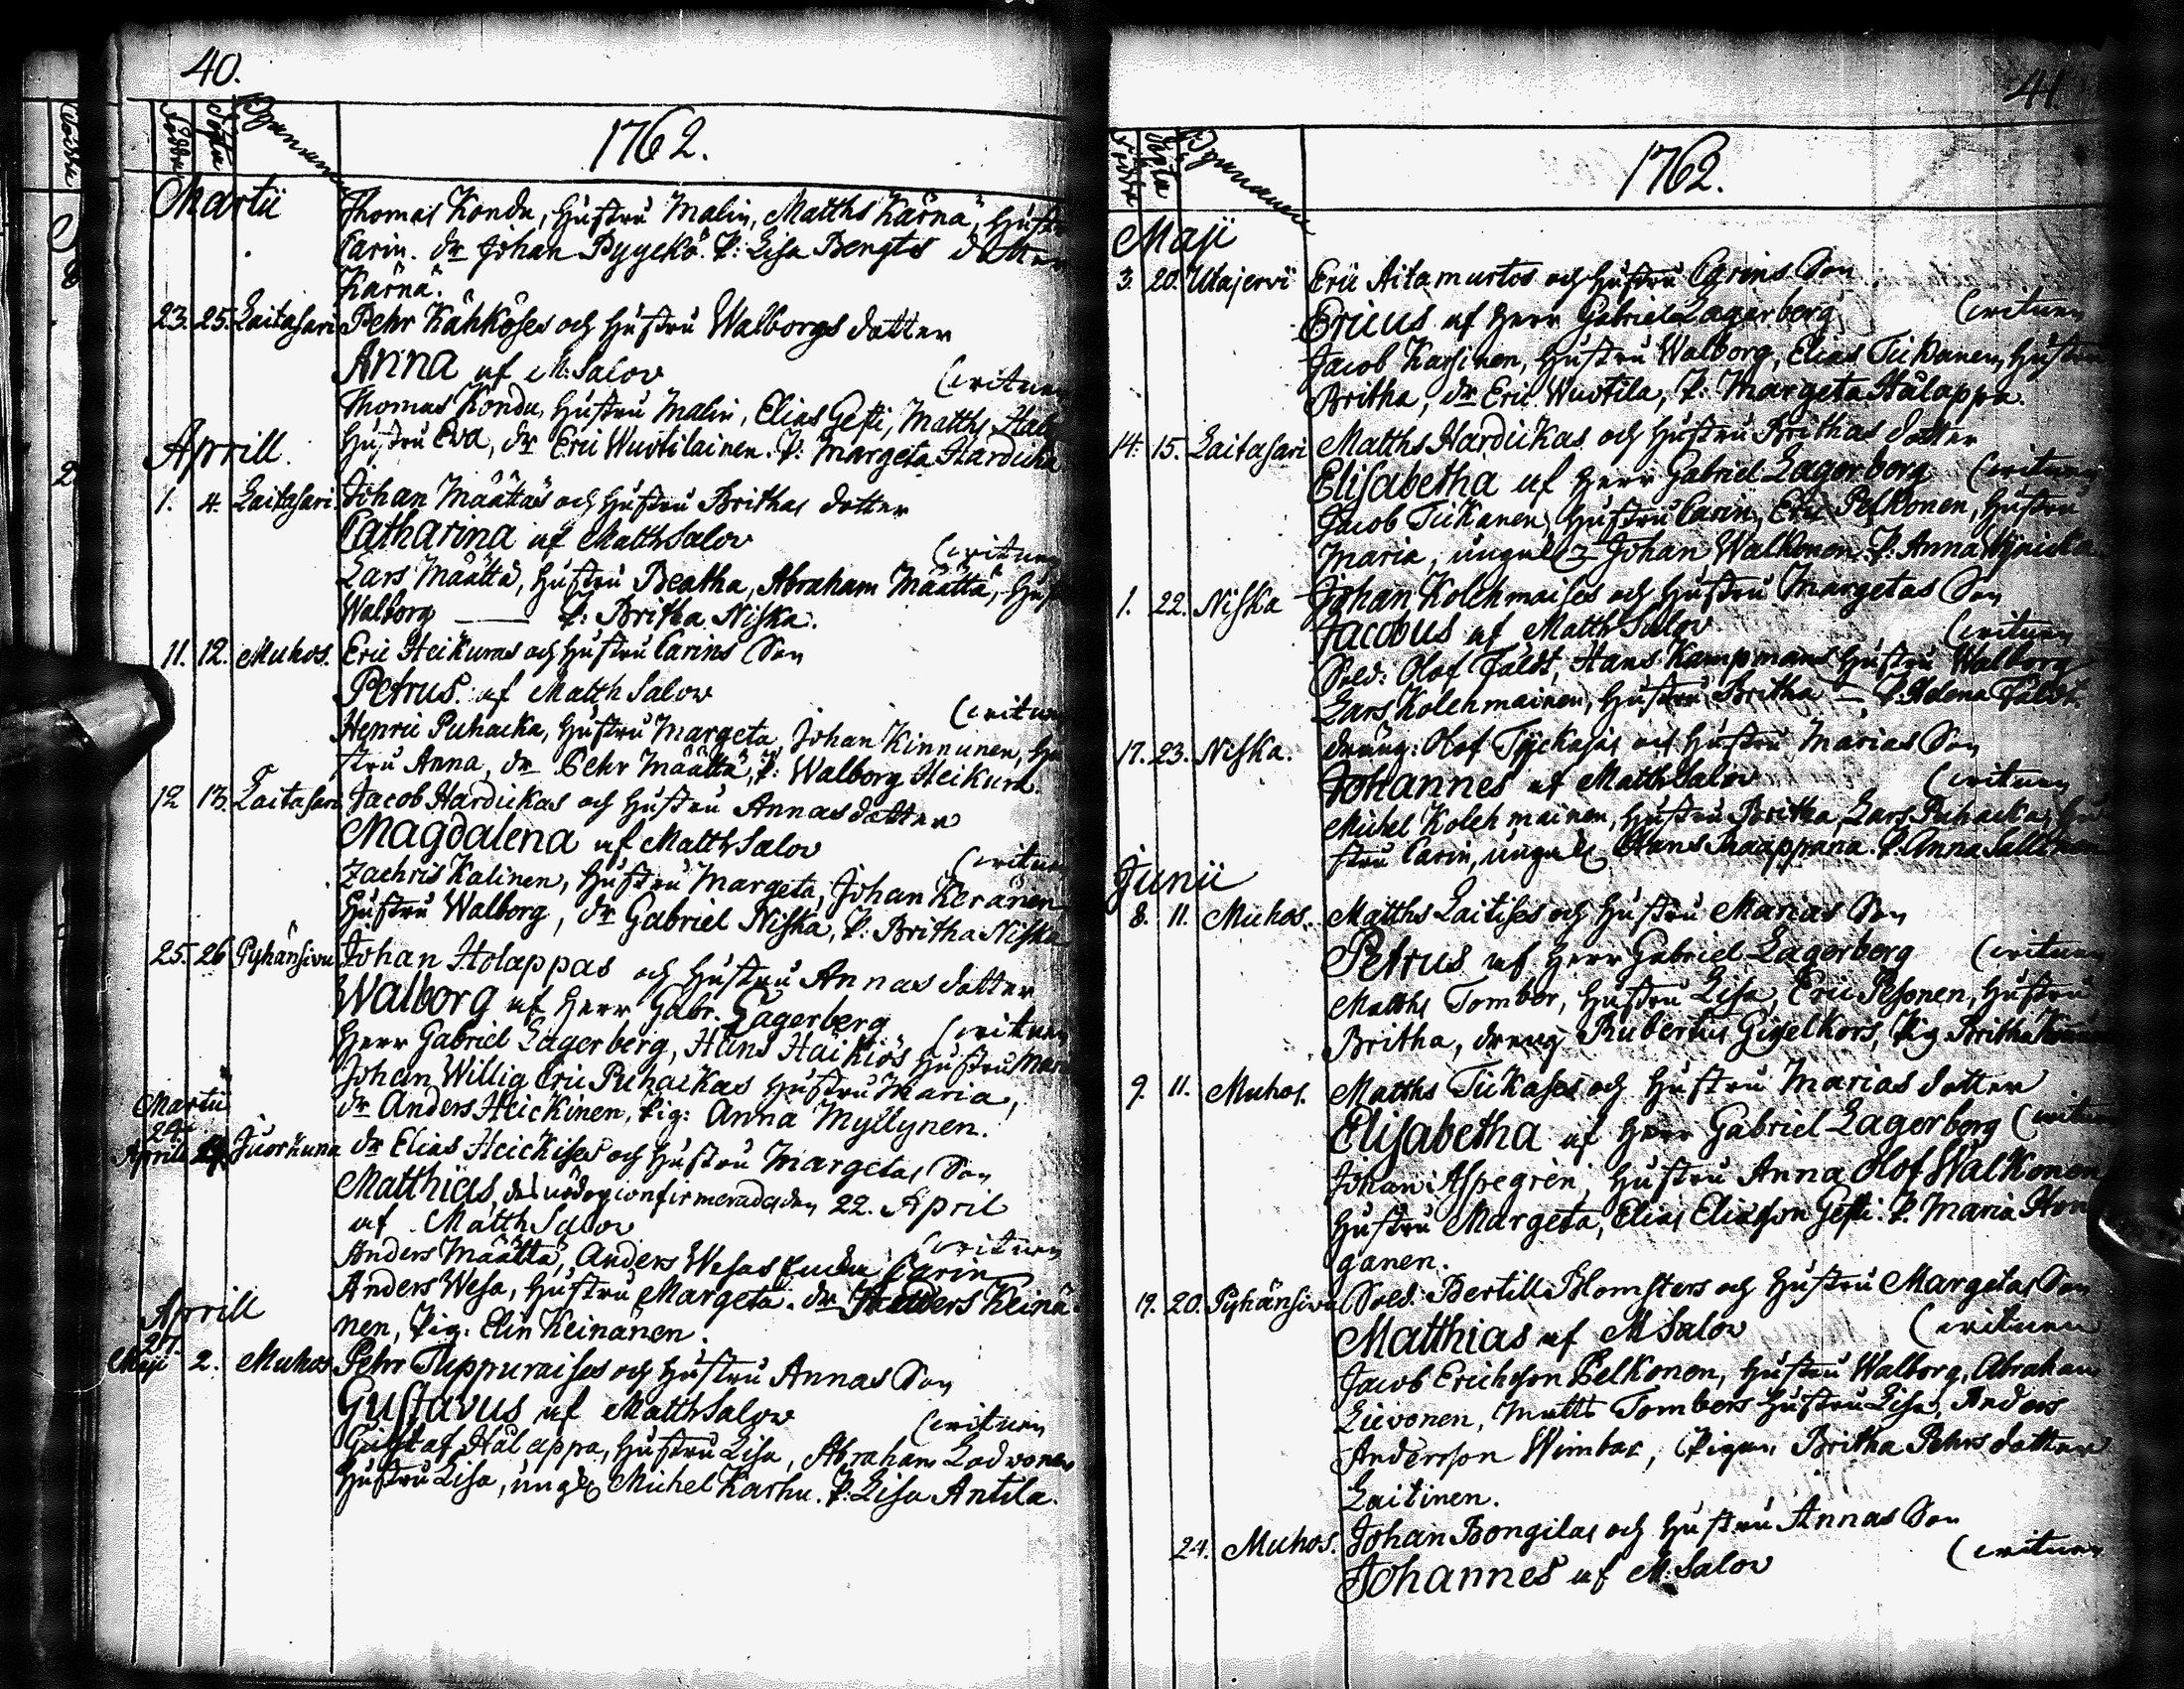 40.
Födde
Döpte
Byarnamn
1762.
Martii
Thomas Kondu, hustru Malin, Matths Kärnä, hustru
Carin. dr Johan Pyyckö. P: Lisa Bengts dotter
Kärnä.
23. 25. Laitasari Pehr Kähköses och hustru Walborgs dotter
Anna af M: Salov
(vitnen
Thomas Kondu, hustru Malin, Elias Gesti, Matths
hustru Eva, dr Eric Wuotilainen. P: Margeta Hardicka
Aprill.
1. 4. Laitasari Johan Määtäs och hustru Brithas dotter
Catharina af Matth Salov
(vitnen
Lars Määttä, hustru Beatha, Abraham Määttä, hust
Walborg — P: Britha Niska.
11. 12. Muhos. Eric Heikuras och hustru Carins Son
Petrus. af Matth Salov
(vitnen
Henric Puhacka, hustru Margeta, Johan Kinnunen, hu
stru Anna, dr Pehr Määttä, P: Walborg Heikura.
12 13. Laitasari Jacob Hardickas och hustru Annas dotter
Magdalena af Matth Salov
(vitnen
Zachris Kalinen, hustru Margeta, Johan Keränen
hustru Walborg, dr Gabriel Niska, P: Britha Niska
25. 26 Pyhänsivu Johan Holappas och hustru Annas dotter
Walborg af Herr Gabr. Lagerberg
(vitnen
Herr Gabriel Lagerberg, Hans Häikiös hustru Mar
Johan Willig Eric Puhackas hustru Maria,
dr Anders Heickinen, Pig: Anna Myllynen.
Martii
29.
Aprill Juorkuna dr Elias Heickises och hustru Margetas Son
Matthias, des nöddop confirmerades den 22. April
af Matth Salov
(vitnen
Anders Määttä, Anders Wesas Carin
Anders Wesa, hustru Margeta. dr Keinä-
nen, Pig: Elin Keinänen.
Aprill
27.
Maji 2. Muhos Pehr Tuppuraises och hustru Annas Son
Gustavus af Matth Salov
(vitnen
Gustaf Hålappa, hustru Lisa, Abraham Lodvonen
hustru Lisa, ungk: Michel Karhu. P: Lisa Antila.
41.
Födde
Döpte
Byarnamn
1762.
Maji
3. 20. Utajervi Eric Aitamurtos och hustru Carins Son
Ericus af Herr Gabriel Lagerberg
(vitnen
Jacob Karjinen, hustru Walborg, Elias Tickanen, hustru
Britha, dr Eric Wuotila, P: Margeta Hålappa.
14. 15. Laitasari Matths Hardickas och hustru Brithas dotter
Elisabetha af Herr Gabriel Lagerberg (vitnen
Jacob Tickanen, hustru Carin, Eric Pelkonen, hustru
Maria, ungk: Johan Walkonen. P: Anna
1. 22. Niska Johan Kolehmaises och hustru Margetas Son
Jacobus af Matth Salov
(vitnen
Sold: Olof Fäldt, Hans Kampmans hustru Walborg
Lars Kolehmainen, hustru Britha — P: Helena Fäldt.
17. 23. Niska. dräng: Olof Tyckäjäs och hustru Marias Son
Johannes af Matth Salov
(vitnen
Michel Kolehmainen, hustru Britha, Lars Puhacka, hu
stru Carin, ungk: Hans Raappana. P: Anna Sallinen
Junii
8. 11. Muhos. Matths Laitises och hustru Marias Son
Petrus af Herr Gabriel Lagerberg (vitnen
Matths Tomber, hustru Lisa, Eric Pesonen, hustru
Britha, dräng Rubertus Gigelkors, Pig Britha
9. 11. Muhos. Matths Tickases och hustru Marias dotter
Elisabetha af Herr Gabriel Lagerberg (vitnen
Johan Aspegren, hustru Anna Olof Walkonen
hustru Margeta, Elias Eliasson Gesti. P. Maria Hon
ganen.
19. 20. Pyhänsivu Sold. Bertill Blomsters och hustru Margetas Son
Matthias af M Salov
(vitnen
Jacob Erichsson Pelkonen, hustru Walborg, Abraham
Lievonen, Matts Tombers hustru Lisa, Anders
Andersson Wimbar, Pigan Britha Pehrs dotter
Laitinen.
24. Muhos. Johan Bongilas och hustru Annas Son
Johannes af M: Salov
(vitnen